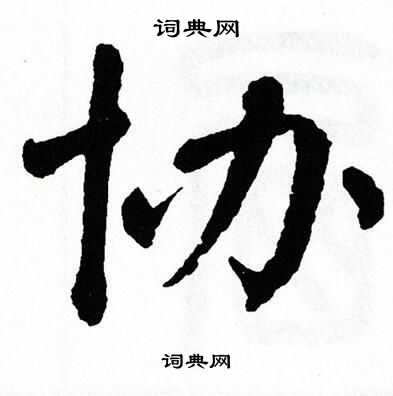 词典网
协
词典网